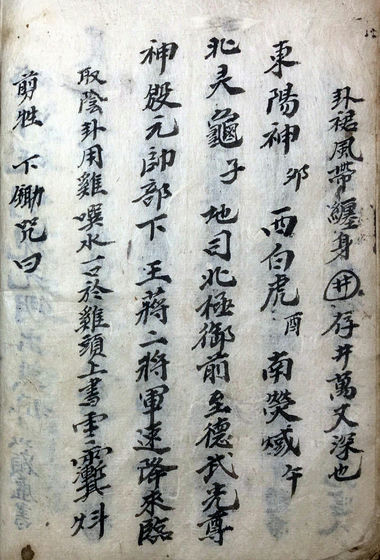 卦裙風帶纏身井存井萬丈深也
東陽神卯西白虎酉南熒惑午
北灵龜子地司北極御前至德武光尊
神殷元帥部下王蔣二將軍速降來臨
取陰卦用雞噀水一口於雞頭上書
前牲下勅咒曰